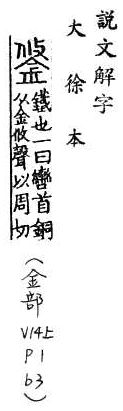 說文解字
大徐本
鋚
鐵也一曰轡首銅
从金攸聲以周切
(金部 V14上 P1 b3)